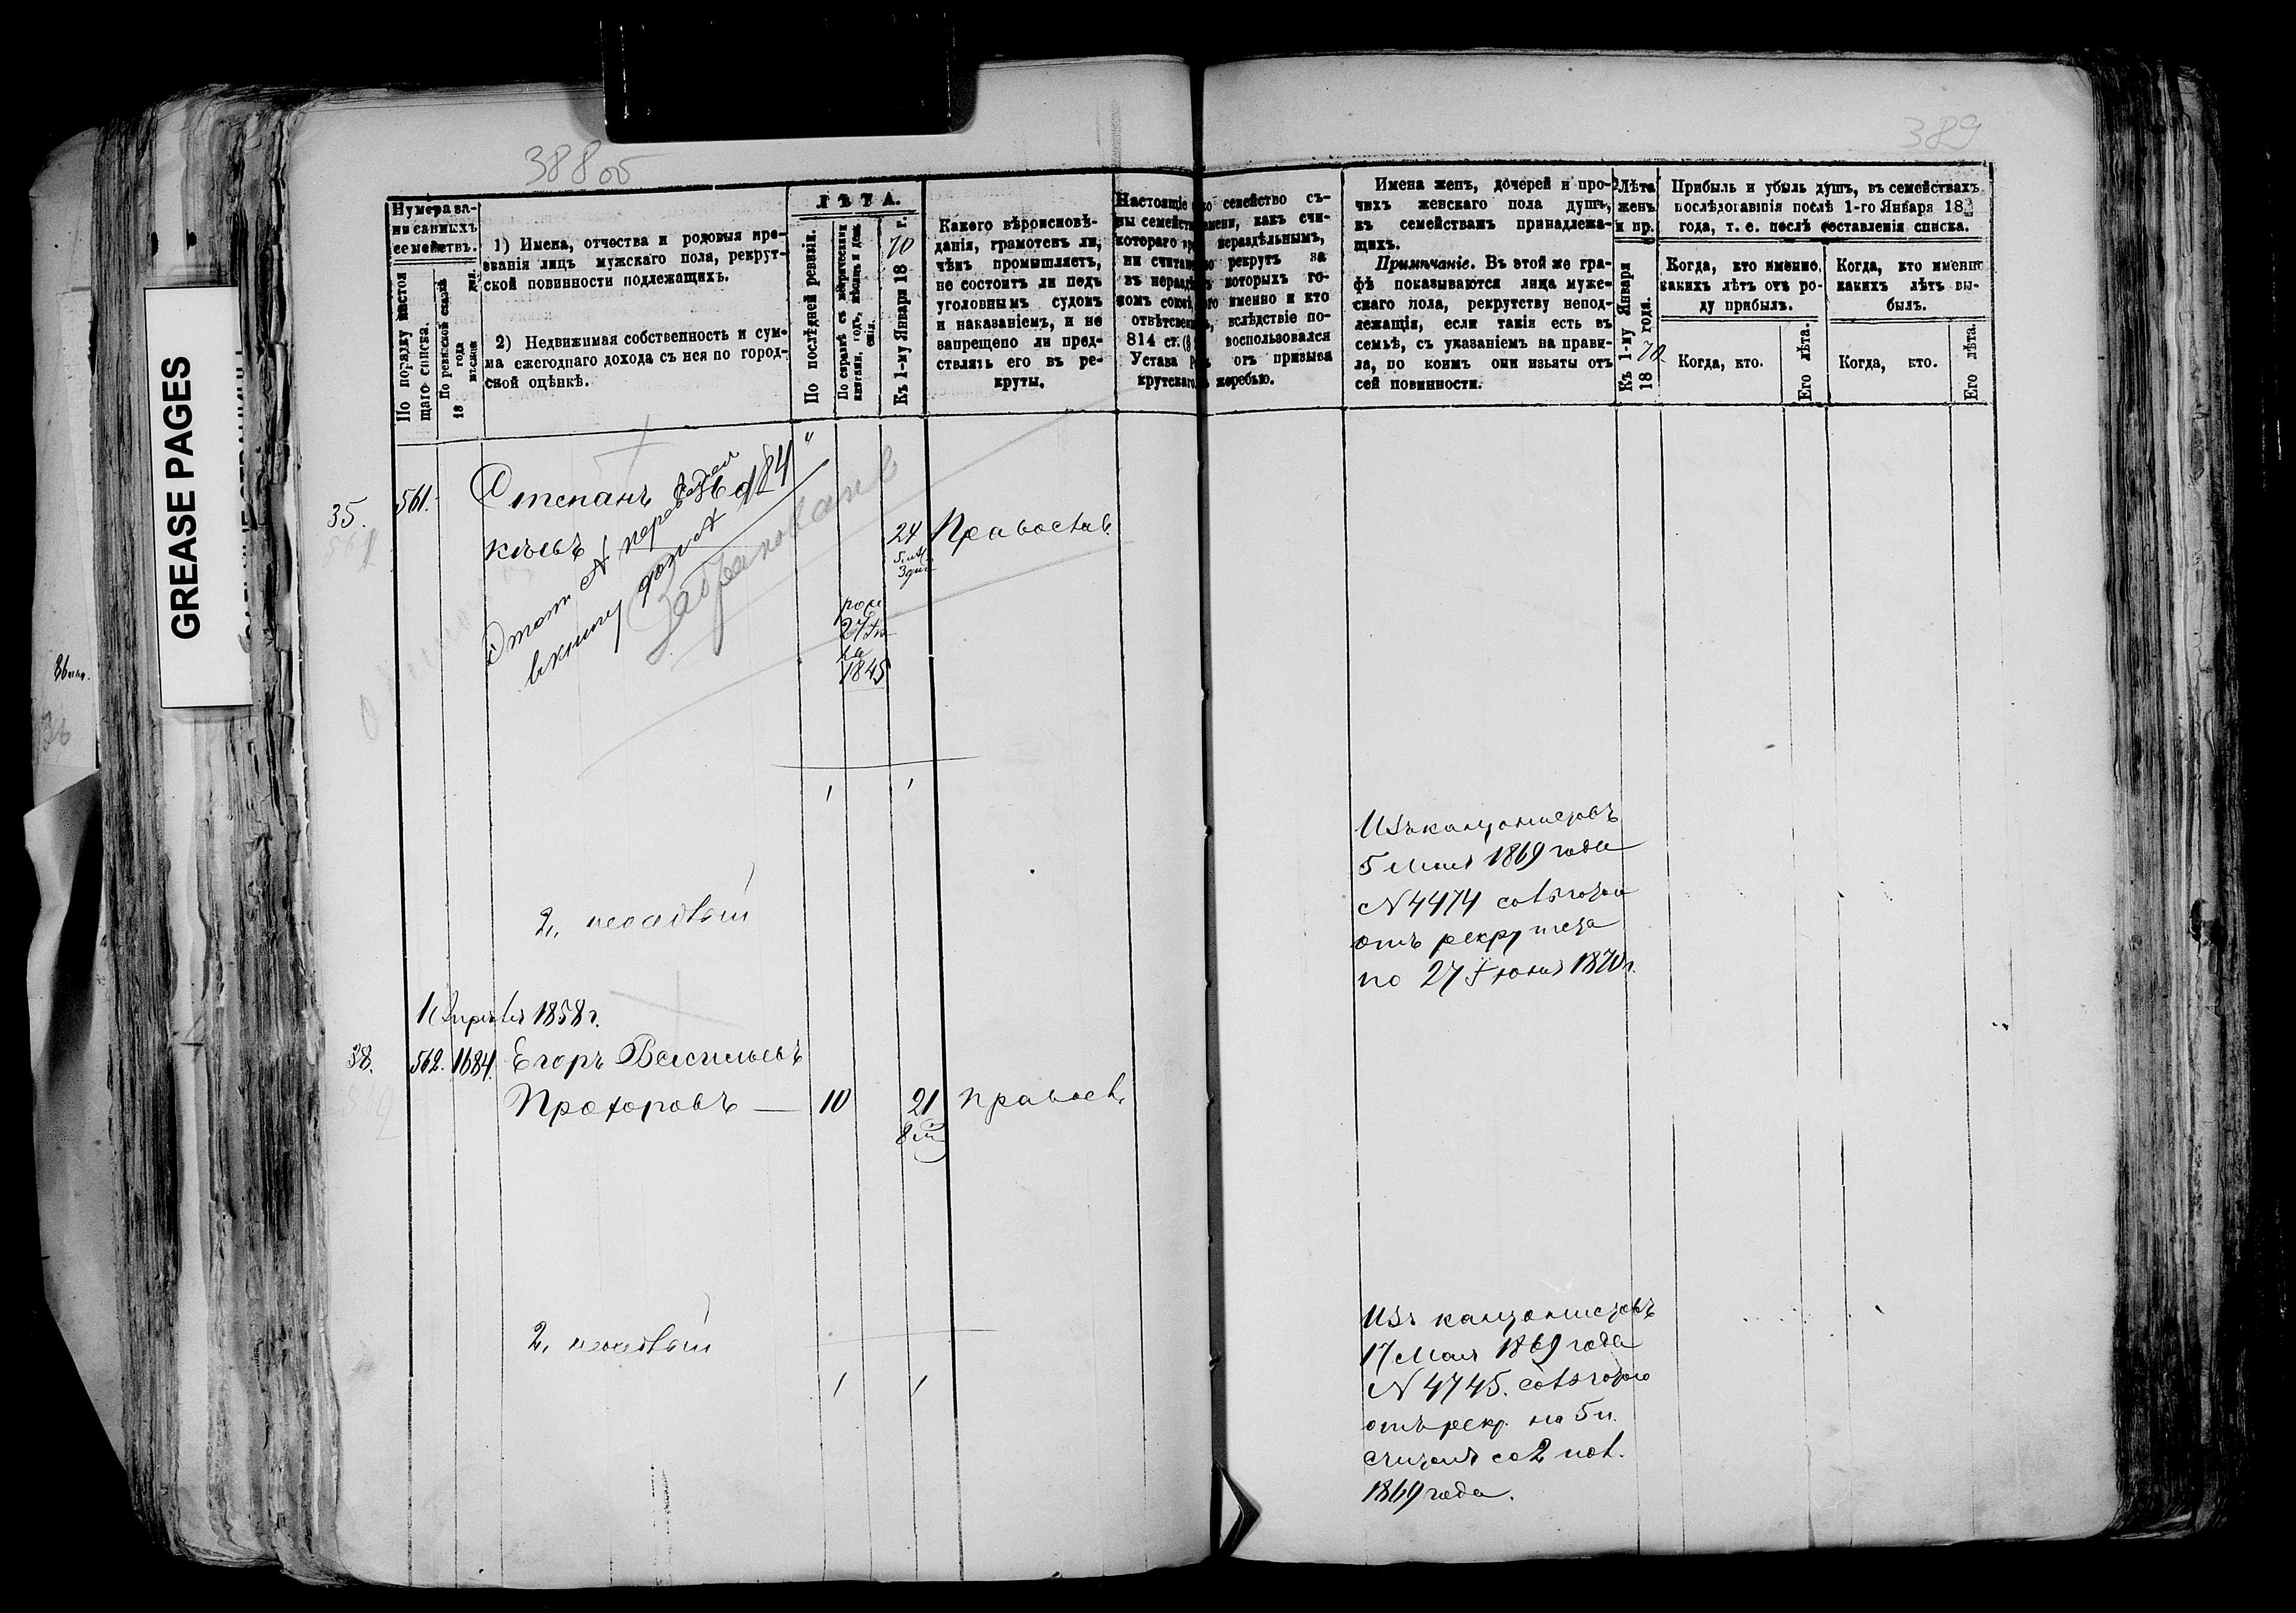 388 об
389
GREASE PAGES
Нумера за-
писанныхъ
семействъ.
По порядку настоя
щаго списка.
По ревизской сказкѣ
18 года
мѣсяця дня.
1) Имена, отчества и родовыя про-
званія лицъ мужскаго пола, рекрут-
ской повинности подлежащихъ.
2) Недвижимая собственность и сум-
ма ежегоднаго дохода съ нея по город-
ской оцѣнкѣ.
ЛѢТА.
По послѣдней ревизіи.
По справкѣ съ метрическими
книгами, годъ, мѣсяцъ и день
Къ 1-му Января 1870 г.
Какого вѣроисповѣ-
данія, грамотенъ ли,
чѣмъ промышляетъ,
не состоитъ ли подъ
уголовнымъ судомъ
и наказаніемъ, и не
запрещено ли пред-
ставлять его въ ре-
круты.
Настоящіе
ны семейств
котораго
ни счита
въ нераздѣ
комъ союзѣ
отвѣтствен
814 ст.
Устава Ре
крутскаго
семейство съ-
мени, какъ счи-
нераздѣльнымъ,
рекрутъ за
которыхъ го-
именно и кто
вслѣдствіе по-
воспользовался
отъ призыва
жеребью.
Имена женъ, дочерей и про-
чихъ женскаго пола душъ,
къ семействамъ принадлежа-
щихъ.
Примѣчаніе. Въ этой же гра-
фѣ показываются лица муже-
скаго пола, рекрутству непод-
лежащія, если такія есть въ
семьѣ, съ указаніемъ на прави-
ла, по коимъ они изъяты отъ
сей повинности.
Лѣта
женъ
и пр.
Къ 1-му Января
1870 года.
Прибыль и убыль душъ, въ семействахъ
послѣдовавшія послѣ 1-го Января 18
года, т. е. послѣ составленія списка.
Когда, кто именно,
какихъ лѣтъ отъ ро-
ду прибылъ.
Когда, кто именно
какихъ лѣтъ вы-
былъ.
Когда, кто.
Его лѣта.
Когда, кто.
Его лѣта.
35.
561.
Степанъ
Этотъ № переведен
в книгу
Забракованъ
24
Православ.
27 Iю
1845
1 1
Изъ кантонистовъ
5 Мая 1869 года
№ 4474 
отъ рекрутства
по 27 Iюня 1870 г.
2,
1 Апрѣля 1858 г.
38.
562. 1684. Егоръ Васильевъ
Прохоровъ — 10 21 правосл.
8 м
2,
1 1
Изъ кантонистовъ
17 Мая 1869 года
№ 4745.
отъ рекр. на 5 л.
считая со 2 
1869 года.